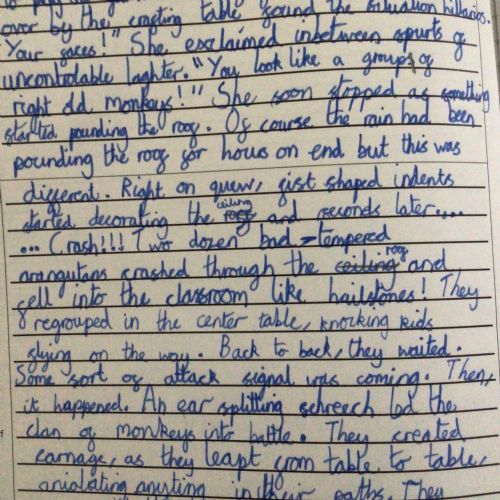 over by the crafting table found the situation hillarios.
Your faces!" She exclaimed inbetween spurts of
uncontrolable laghter. "You look like a groups of
right old monkeys!" She soon stopped as something
started pounding the roof. Of course the rain had been
pounding the roof for hours on end but this was
different. Right on quew, fist shaped indents
started decorating the roof ceiling and seconds later....
... Crash!!! Two dozen bad-tempered
orangutans crashed through the ceiling roof and
fell into the classroom like hailstones! They
regrouped in the center table, knocking kids
flying on the way. Back to back, they waited.
Some sort of attack signal was coming. Then,
it happened. An ear splitting schreech led the
clan of monkeys into battle. They created
carnage, as they leapt from table to table,
anialating anyting in their paths. They